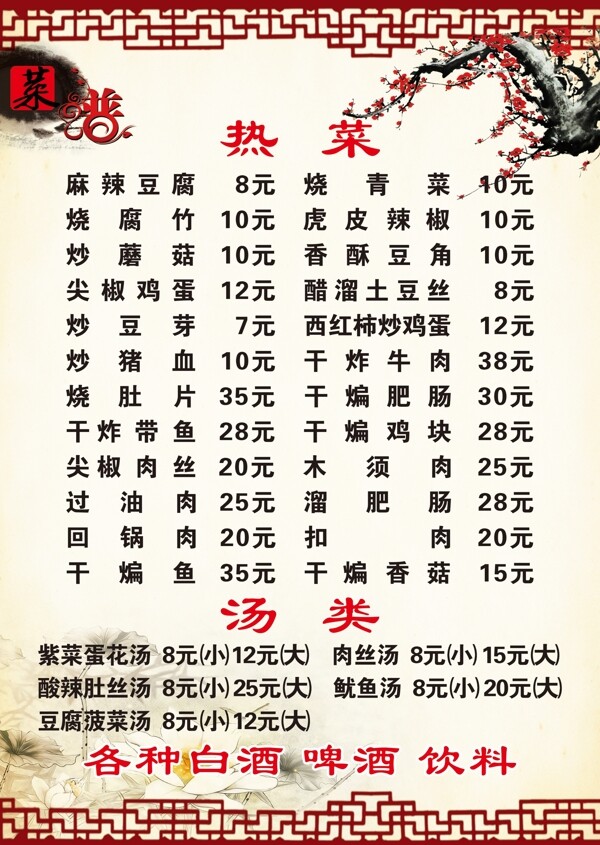 菜谱
热菜
麻辣豆腐 8元 烧青菜 10元
烧腐竹 10元 虎皮辣椒 10元
炒蘑菇 10元 香酥豆角 10元
尖椒鸡蛋 12元 醋溜土豆丝 8元
炒豆芽 7元 西红柿炒鸡蛋 12元
炒猪血 10元 干炸牛肉 38元
烧肚片 35元 干煸肥肠 30元
干炸带鱼 28元 干煸鸡块 28元
尖椒肉丝 20元 木须肉 25元
过油肉 25元 溜肥肠 28元
回锅肉 20元 扣肉 20元
干煸鱼 35元 干煸香菇 15元
汤类
紫菜蛋花汤 8元(小)12元(大) 肉丝汤 8元(小)15元(大)
酸辣肚丝汤 8元(小)25元(大) 鱿鱼汤 8元(小)20元(大)
豆腐菠菜汤 8元(小)12元(大)
各种白酒 啤酒 饮料